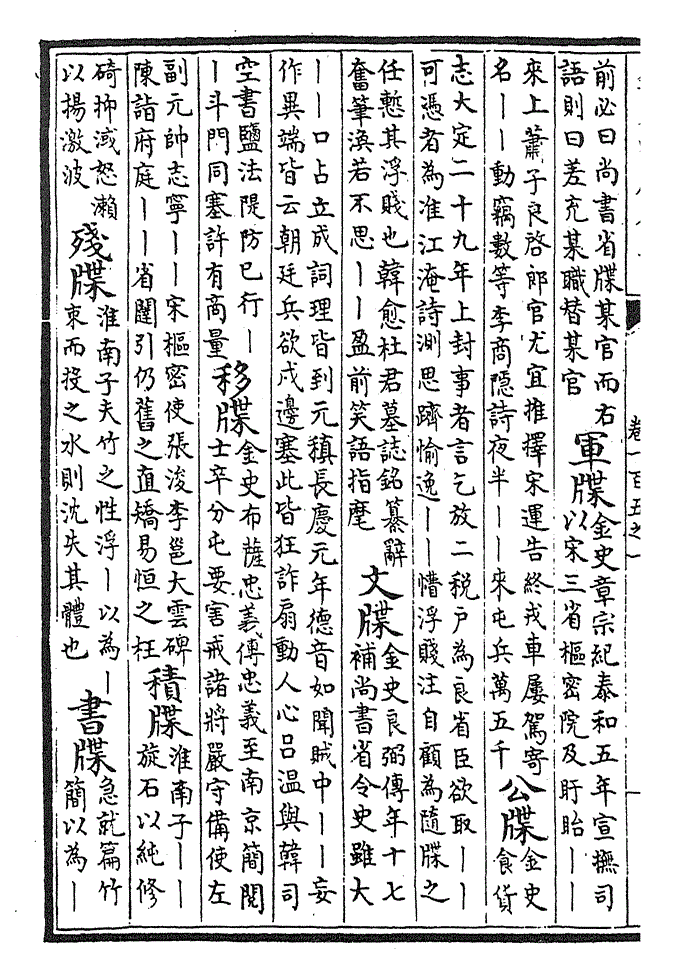 卷一百五之一
前必曰尚書省牒某官而右
語則曰差充某職替某官
軍牒
金史章宗紀泰和五年宣撫司
以宋三省樞密院及盱眙——
來上蕭子良啓郎官尤宜推擇宋運告終戎車屢駕寄
名——動竊數等李商隱詩夜半——來屯兵萬五千
公牒
金史
食貨
志大定二十九年上封事者言乞放二税户為良省臣欲取——
可憑者為准江淹詩測思躋愉逸——懵浮賤注自顧為隨牒之
任慙其浮賤也韓愈杜君墓誌銘纂辭
奮筆渙若不思——盈前笑語指麾
文牒
金史良弼傳年十七
補尚書省令史雖大
——口占立成詞理皆到元稹長慶元年德音如聞賊中——妄
作異端皆云朝廷兵欲戍邊塞此皆狂詐扇動人心吕温與韓司
空書鹽法隄防已行—
—斗門同塞許有商量
移牒
金史布薩忠義傳忠義至南京簡閲
士卒分屯要害戒諸將嚴守備使左
副元帥志寧——宋樞密使張浚李邕大雲碑
陳詣府庭——省闥引仍舊之直矯易恒之枉
積牒
淮南子——
旋石以純修
碕抑淢怒瀨
以揚激波
殘牒
淮南子夫竹之性浮—以為—
束而投之水則沈失其體也
書牒
急就篇竹
簡以為—